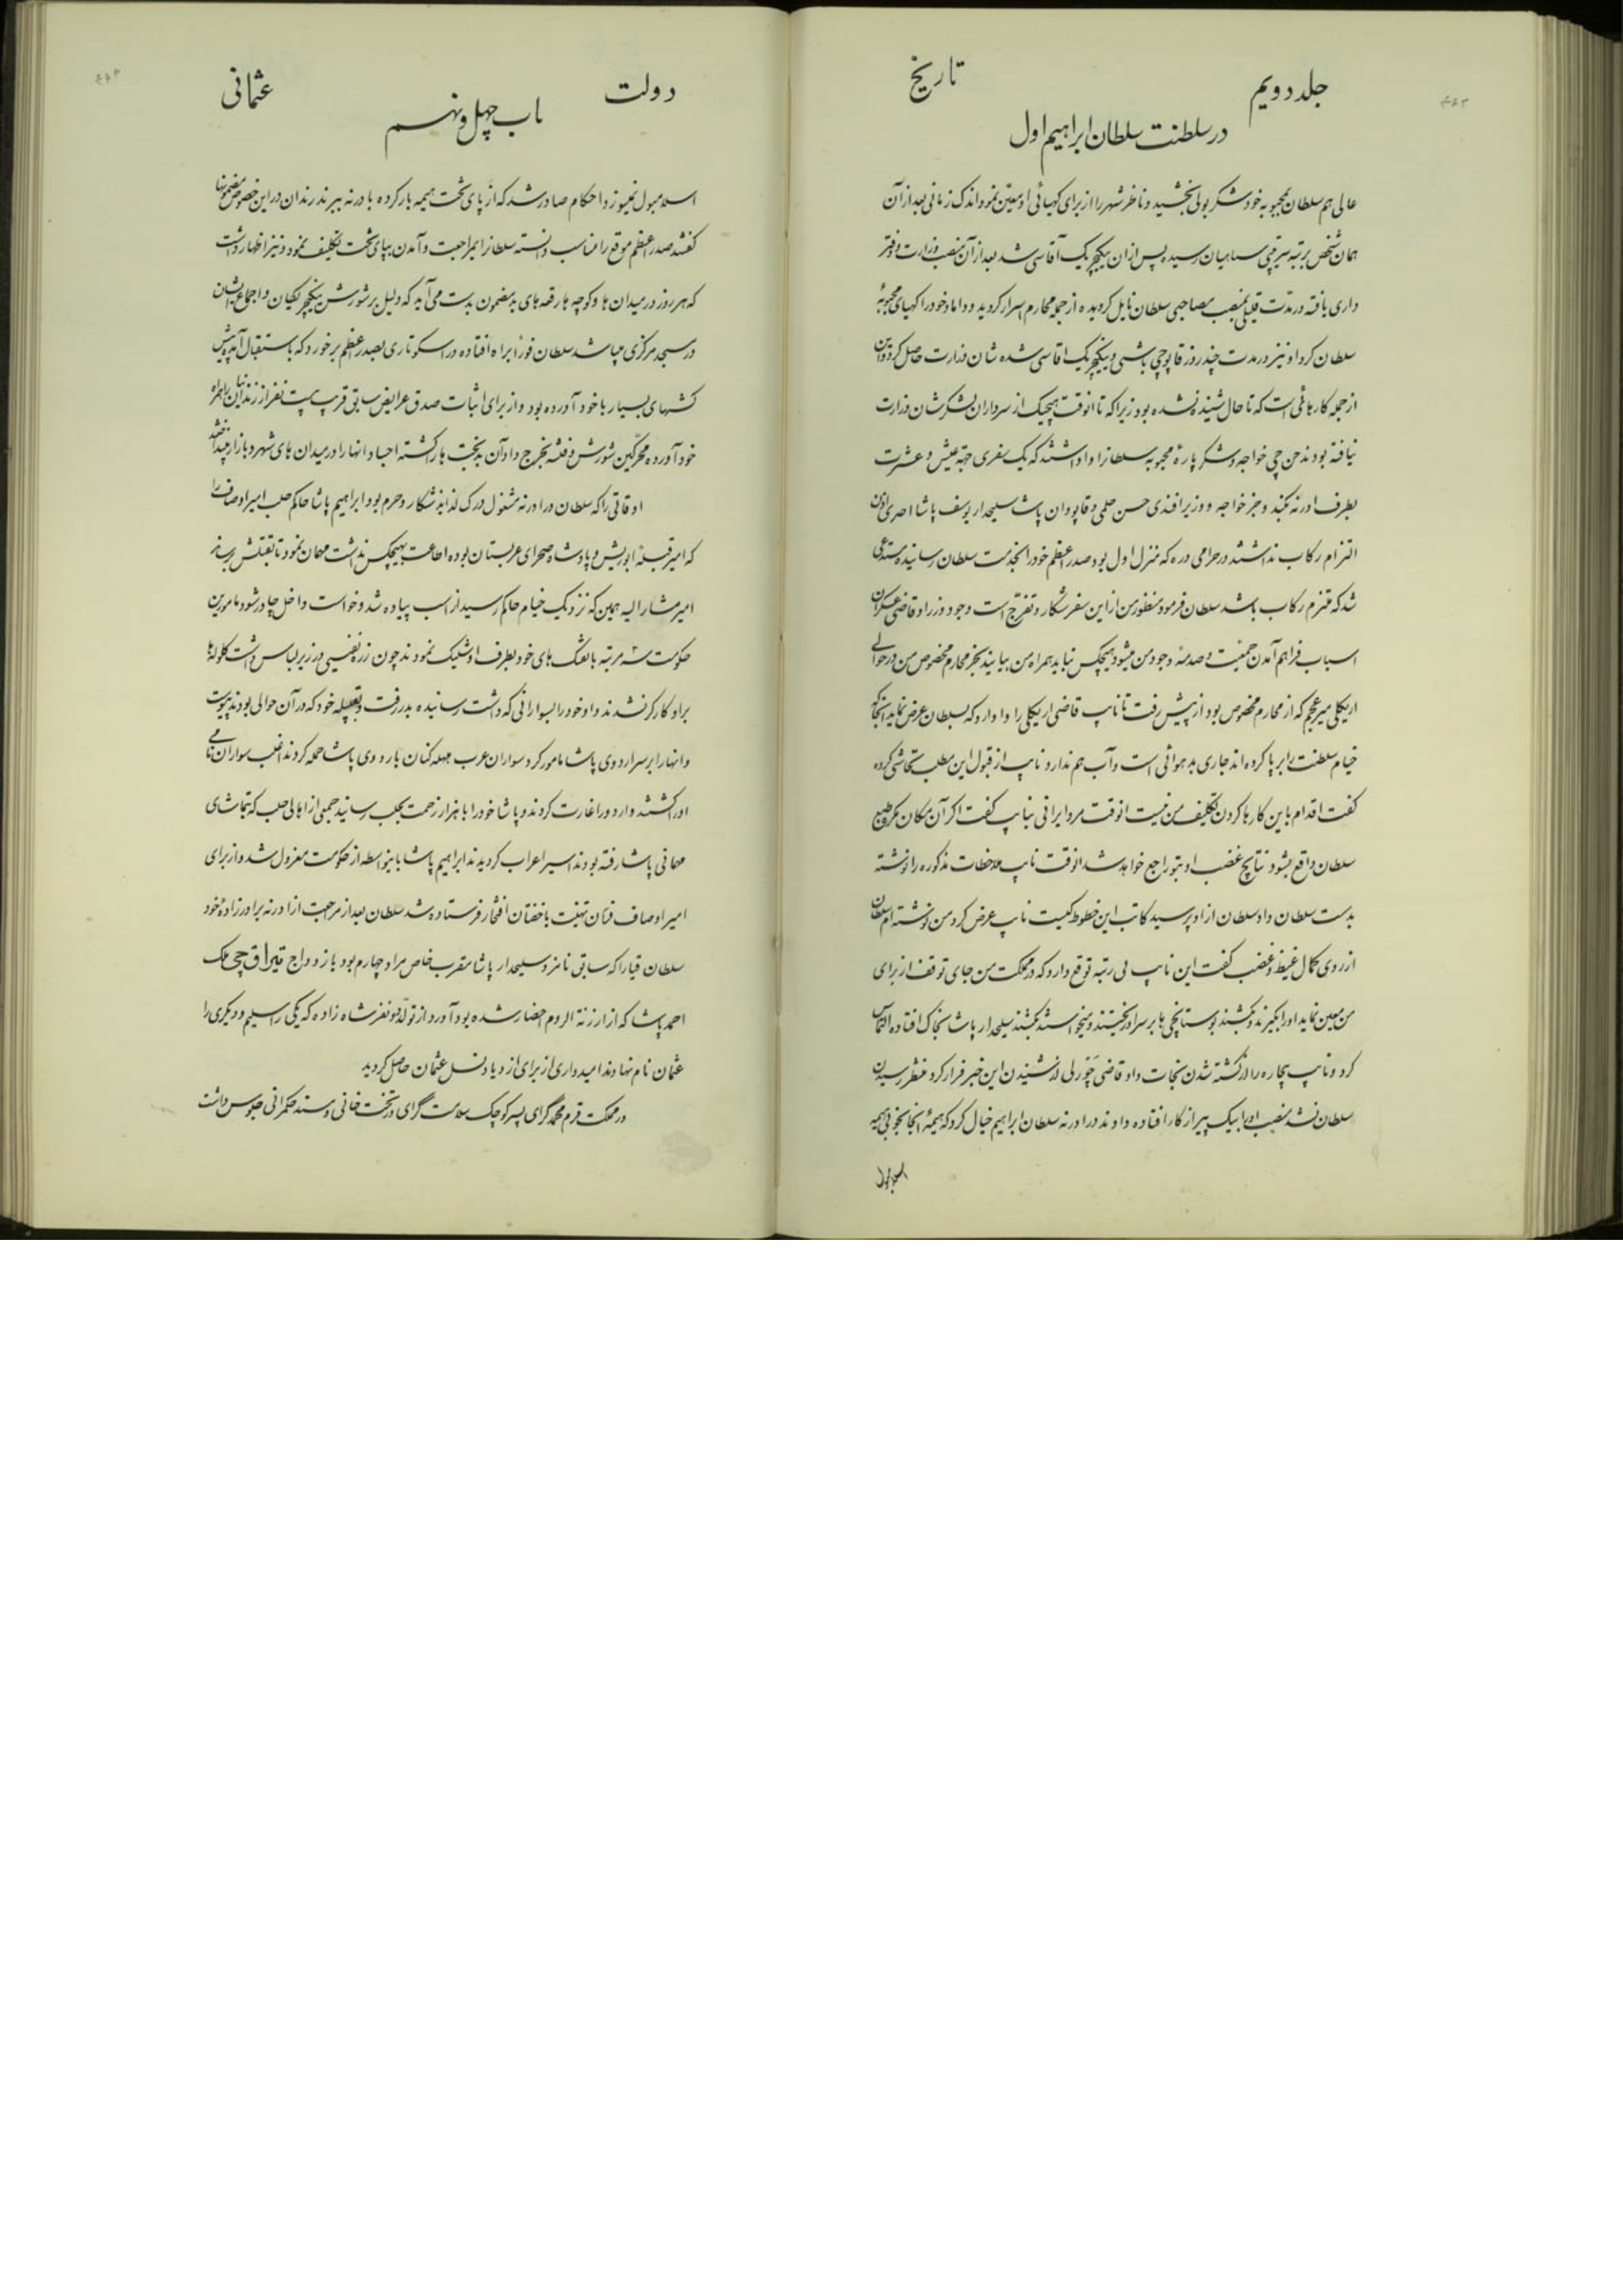 جلد دویم
تاریخ
در سلطنت سلطان ابراهیم اول
عالی هم سلطان بمحبوبه خود شکر بولی بخشید و ناظر شهر را از برای کهیائی او معین نمود اندک زمانی بعد از آن
همان شخص برتبه میرآخوری سپاهیان رسید پس از ان ینکچریک آقاسی شد بعد از آن منصب وزارت و دفتر
داری یافته در مدت قلیلی بمنصب مصاحبی سلطان نایل کردیده از جمله محارم اسرار کردید و داماد خود را کهیای محبوبهٔ
سلطان کرد او نیز در مدت چند روز قاپوچی باشی و ینکچریک اقاسی شده شان وزارت حاصل کرد و این
از جمله کارهائی است که تا حال شنیده نشده بود زیرا که تا انوقت هیچیک از سرداران لشکر شان وزارت
نیافته بودند جن چی خواجه و شکر پارهٔ محبوبه سلطانرا واداشتند که یک سفری جهة عیش و عشرت
بطرف ادرنه بکند و جز خواجه و وزیر افندی حسن حلمی و قاپودان پاشا سلیحدار یوسف پاشا احدی اذن
التزام رکاب نداشتند در حرامی دره که منزل اول بود صدر اعظم خود را بخدمت سلطان رسانیده مستدعی
شد که ملتزم رکاب باشد سلطان فرمود منظور من از این سفر شکار و تفرج است وجود وزرا و قاضی عسکران
اسباب فراهم آمدن جمعیت و صدمهٔ وجود من میشود هیچکس نباید همراه من بیایند بجز محارم مخصوص من در حوالی
ارکلی میر عجم که از محارم مخصوص بود از پیش رفت تا نایب قاضی ارکلی را وادارد که بسلطان عرض نماید اینجا که
خیام سلطنت را برپا کرده اند جای بد هوائی است و آب هم ندارد نایب از قبول این مطلب تحاشی کرده
گفت اقدام باین کارها کردن تکلیف من نیست انوقت مرد ایرانی بنایب گفت اگر آن مکان مکروه طبع
سلطان واقع بشود نتایج غضب او بتو راجع خواهد شد انوقت نایب ملاحظات مذکوره را نوشته
بدست سلطان داد سلطان از او پرسید کاتب این خطوط کیست نایب عرض کرد من نوشته ام سلطان
از روی کمال غیظ و غضب گفت این نایب بی رتبه توقع دارد که در مملکت من جای توقف از برای
من معین نماید او را بگیرند و بکشند بوستانچی ها بر سر او ریختند و میخواستند بکشند سلیحدار پاشا بخاک افتاده التماس
کرد و نایب بیچاره را از کشته شدن نجات داد قاضی چورلی از شنیدن این خبر فرار کرد منتظر رسیدن
سلطان نشد منصب او را بیک پیر از کار افتاده دادند در ادرنه سلطان ابراهیم خیال کرد که هیمهٔ انجا بخوبی هیمه
اسلامبول
دولت
عثمانی
باب چهل و نهم
اسلامبول نمیسوزد احکام صادر شد که از پای تخت هیمه بار کرده بادرنه ببرند رندان در این خصوص مضمونها
گفتند صدر اعظم موقع را مناسب دانسته سلطانرا بمراجعت و آمدن بپای تخت تکلیف نمود و نیز اظهار داشت
که هر روز در میدان ها و کوچه ها رقعه های بد مضمون بدست می آید که دلیل بر شورش ینکچریکیان و اجماع ایشان
در مسجد مرکزی میباشد سلطان فورا براه افتاده در اسکوتاری بصدر اعظم برخورد که باستقبال آمده پیش
کشهای بسیار با خود آورده بود و از برای اثبات صدق عرایض سابق قریب بیست نفر از زندانیها را همراه
خود آورده محرکین شورش و فتنه بخرج داد آن بدبخت ها را کشته اجساد انها را در میدان های شهر و بازار میانداختند
اوقاتی را که سلطان در ادرنه مشغول درک لذایذ شکار و حرم بود ابراهیم پاشا حاکم حلب امیر اوصاف را
که امیر قبیلهٔ ابوریش و پادشاه صحرای عربستان بوده اطاعت بهیچکس نداشت مهمان نمود تا بقتلش برساند
امیر مشارالیه همین که نزدیک خیام حاکم رسید از اسب پیاده شد و خواست داخل چادر شود مامورین
حکومت سه مرتبه با تفنگ های خود بطرف او شلیک نمودند چون زره نفیسی در زیر لباس داشت گلوله ها
بر او کارگر نشدند و او خود را بسوارانی که داشت رسانیده بدر رفت و بقبیله خود که در آن حوالی بودند پیوست
و انها را بر سر اردوی پاشا مامور کرد سواران عرب هلهله کنان باردوی پاشا حمله کردند اغلب سواران نامی
او را کشتند و اردو را غارت کردند و پاشا خود را با هزار زحمت بحلب رسانید جمعی از اهالی حلب که بتماشای
مهمانی پاشا رفته بودند اسیر اعراب کردیدند ابراهیم پاشا باینواسطه از حکومت معزول شد و از برای
امیر اوصاف فرمان تهنیت با خفتان افتخار فرستاده شد سلطان بعد از مراجعت از ادرنه برادرزادهٔ خود
سلطان قیا را که سابق نامزد سلیحدار پاشا مقرب خاص مراد چهارم بود بازدواج تیراق چی ملک
احمد پاشا که از ارزنة الروم احضار شده بود آورد از تولد دو نفر شاه زاده که یکی را سلیم و دیگری را
عثمان نام نهادند امیدواری از برای ازدیاد نسل عثمان حاصل کردید
در مملکت قرم محمد گرای پسر کوچک سلامت گرای در تخت خانی و مسند حکمرانی جلوس داشت